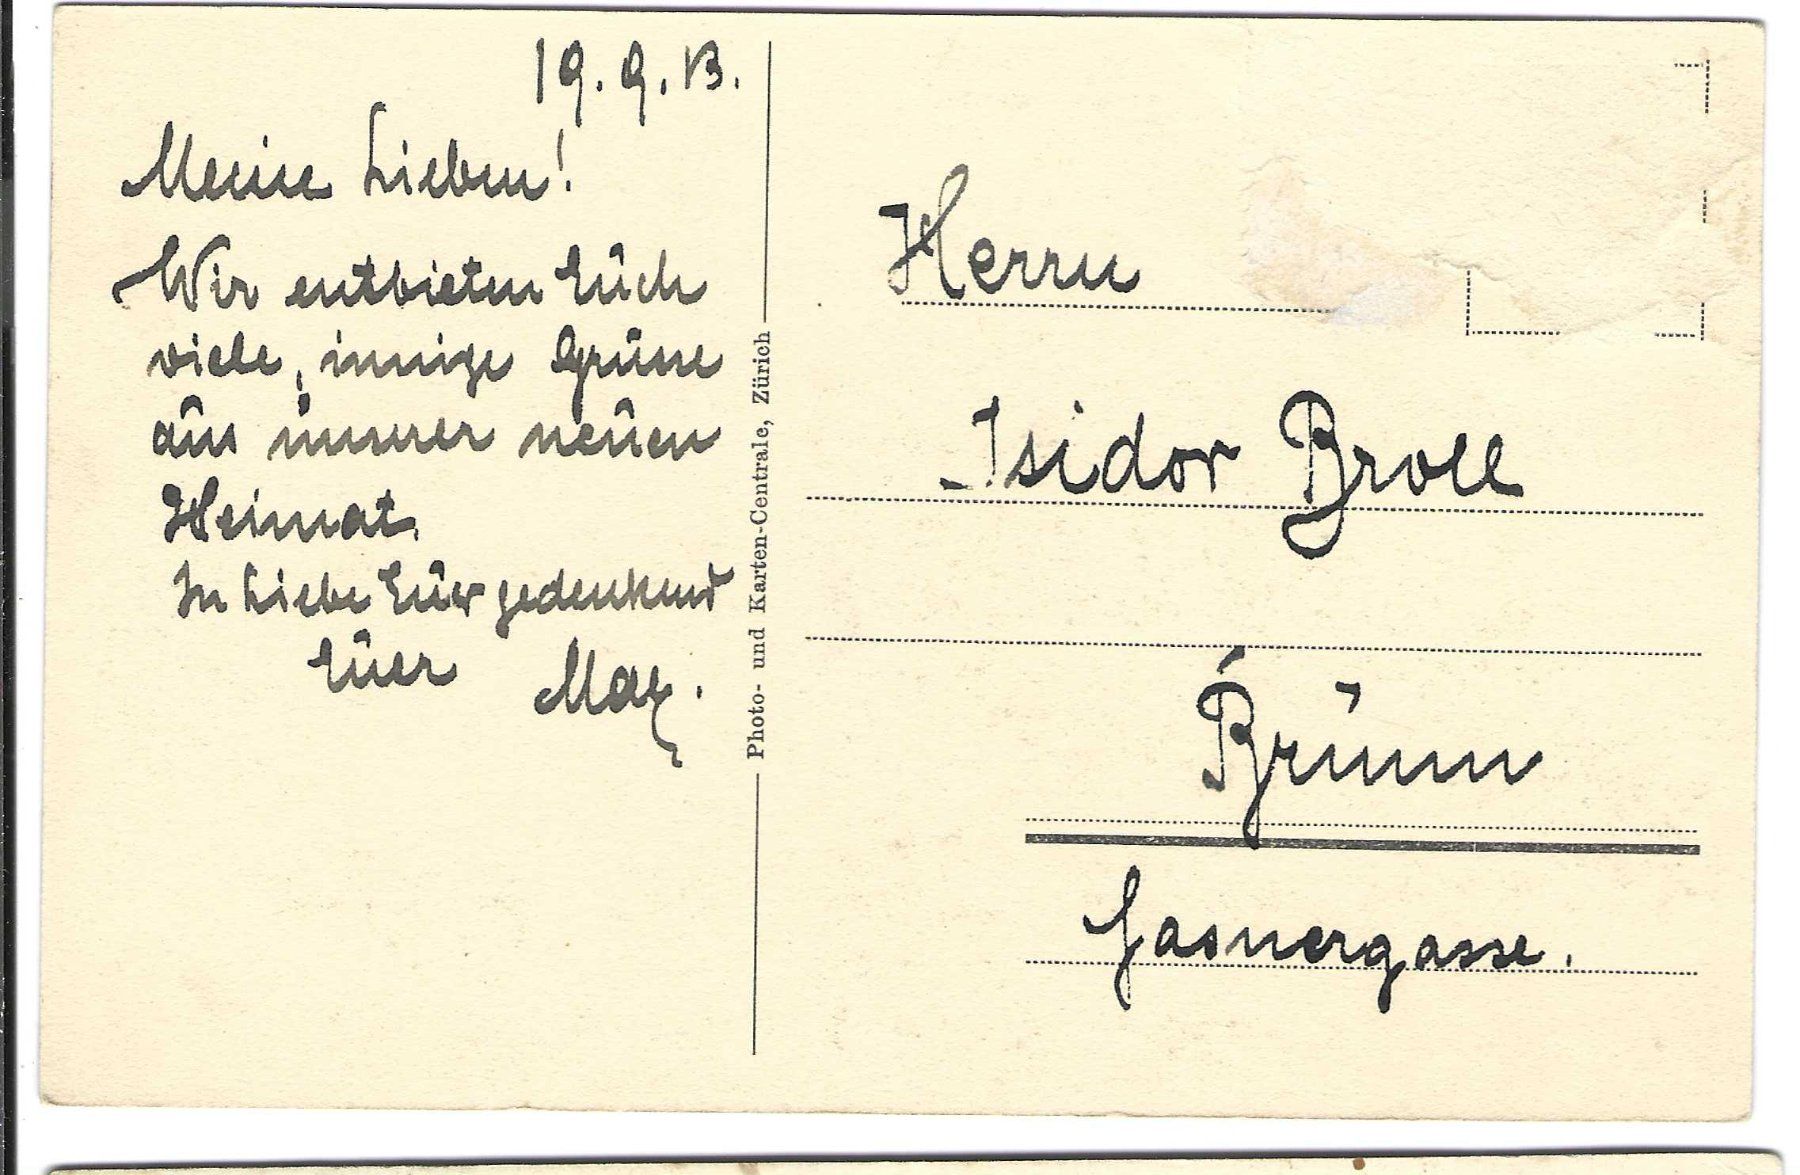 19. 9. 13.
Meine Lieben!
Wir entbieten Euch
viele, innige Grüsse
aus unserer neuen
Heimat.
In Liebe Euer gedenkend
Euer Max.
Photo- und Karten-Centrale, Zürich
Herrn
Isidor Broll
Brünn
Gasnergasse.